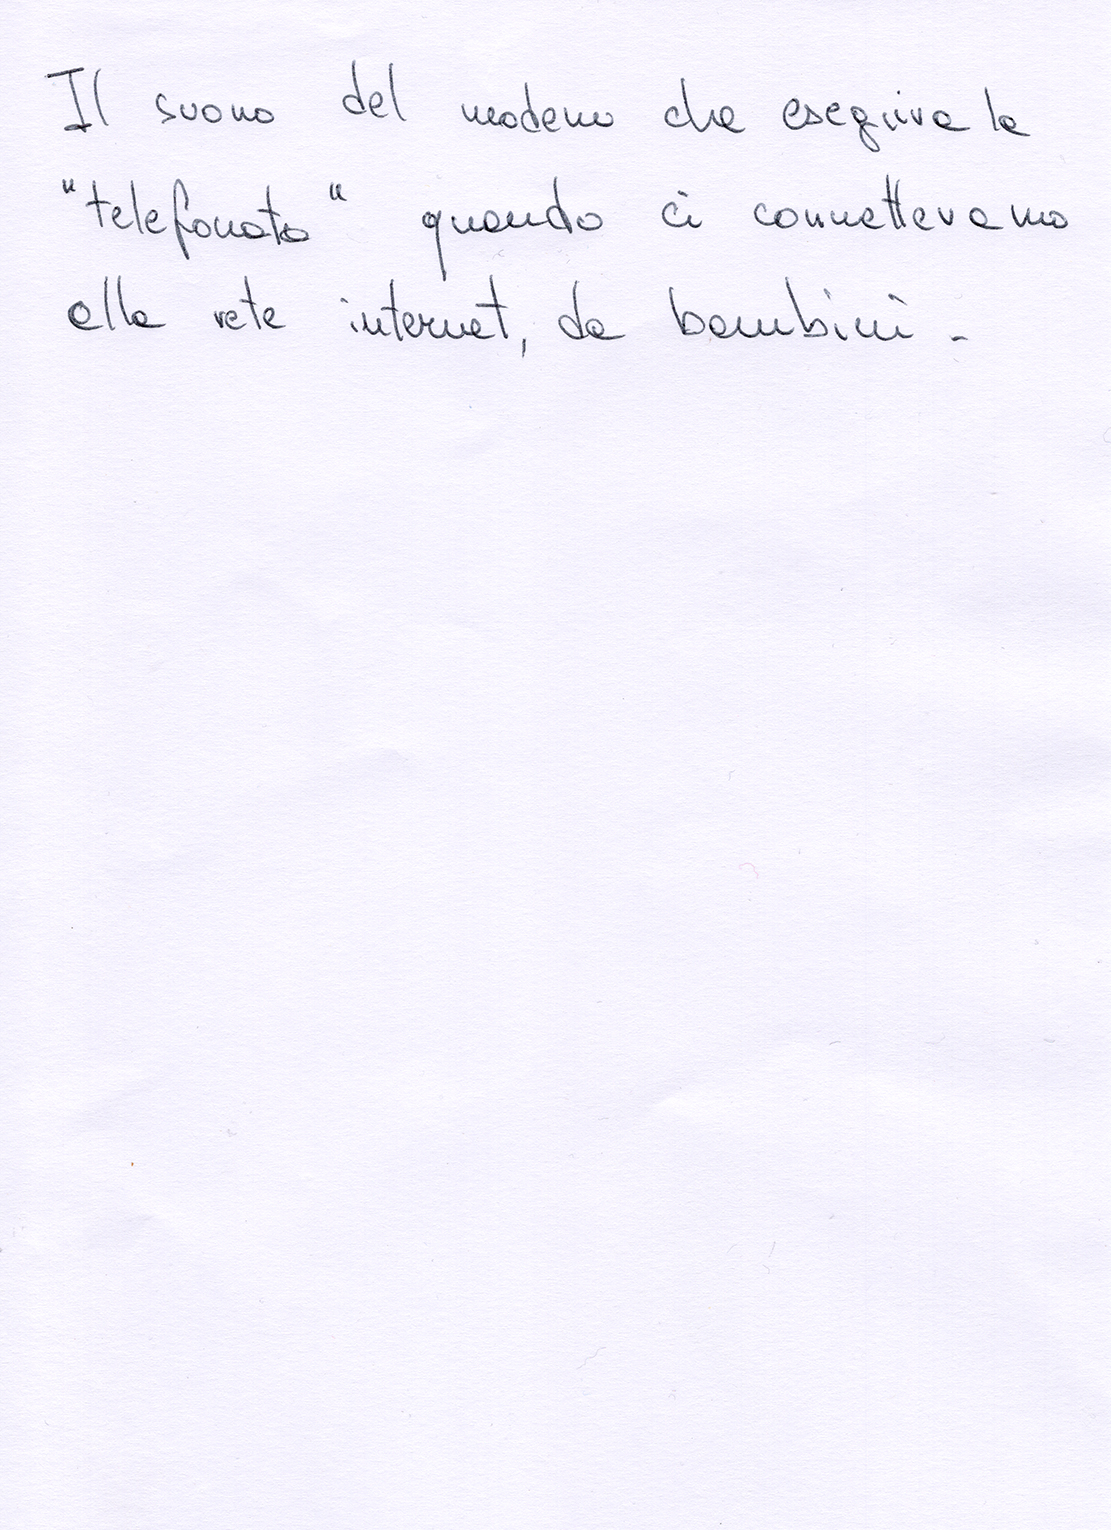 Il suono del modem che eseguiva la
"telefonata" quando ci connettevamo
alla rete internet, da bambini.